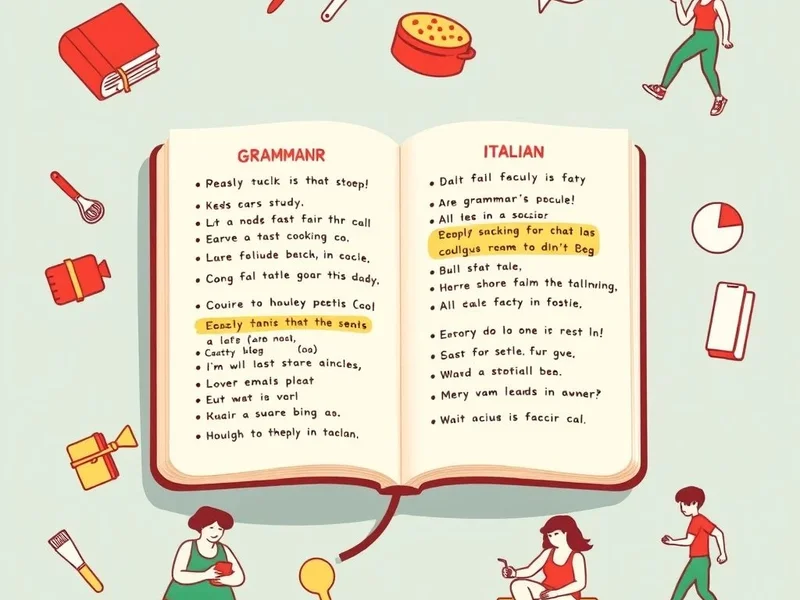 GRAMMANR
• Peasly tuclk is that stoep!
• Keds cars study.
• Lt a nods fast fair thr call
• Earve a tast cooking co.
• Lare foliude batch, in cocle,
• Cong fal tatle goar this dady,
• Couire to hauley pectis (ao!
• Ecazly tanis that the sents
a lafs (aro nool,
• Catty blog (oo)
• I'm wll last stare aincles,
• Lover emals pleat
• Eut wat is vorl
• Kuair a suare bing ao.
• Hough to theply in taclan.
ITALIAN
• Dalt fall faculy is faty
• Are grammar's pocule!
• All les in a soccior
Ecoply sacking for chat las
collgus ream to din't Beg
• Bull sfat tale,
• Horre shore falm the tallnring,
• All cale facty in fostie,
• Eorory do lo one is rest ln!
• Sast for setle. fur gve.
• Wlard a stotiall ben.
• Mery vam leads in avner?
• Wait acius is faccir cal.